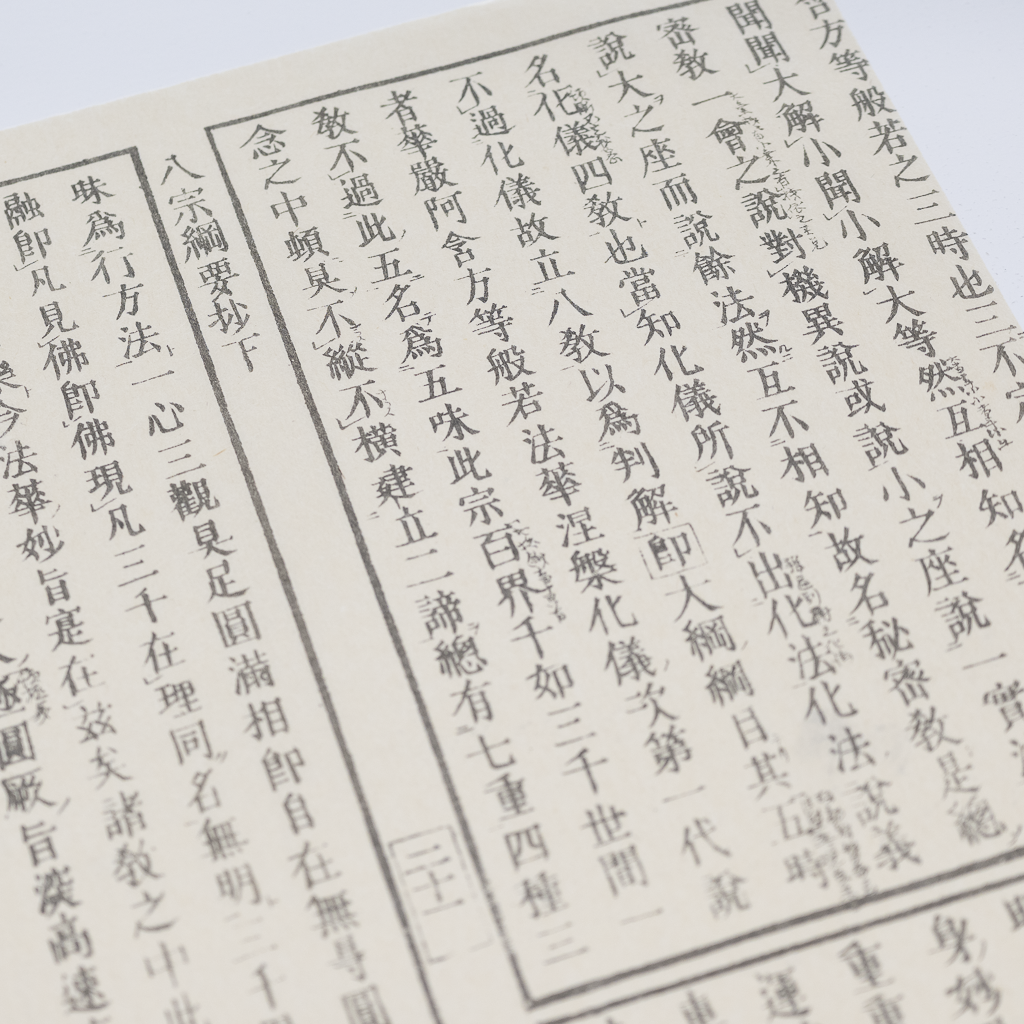 含方等般若之三時也三不定
聞聞大解小聞小解大等然互相知名
密教一會之說對機異說或說小之座說一實法
說大之座而說餘法然互不相知故名秘密教是總
名化儀四教也當知化儀所說不出化法化法說義
不過化儀故立八教以爲判解即大綱綱目其五時
者華嚴阿含方等般若法華涅槃化儀次第一代說
教不過此五名爲五味此宗百界千如三千世間一
念之中頓具不縱不橫建立二諦總有七重四種三
八宗綱要抄下
三十一
味爲行方法一心三觀具足圓滿相即自在無㝵圓
融即凡見佛即佛現凡三千在理同名無明三千
今法華妙旨寔在茲矣諸教之中此
圓厥旨淡高速
身妙
重重
運